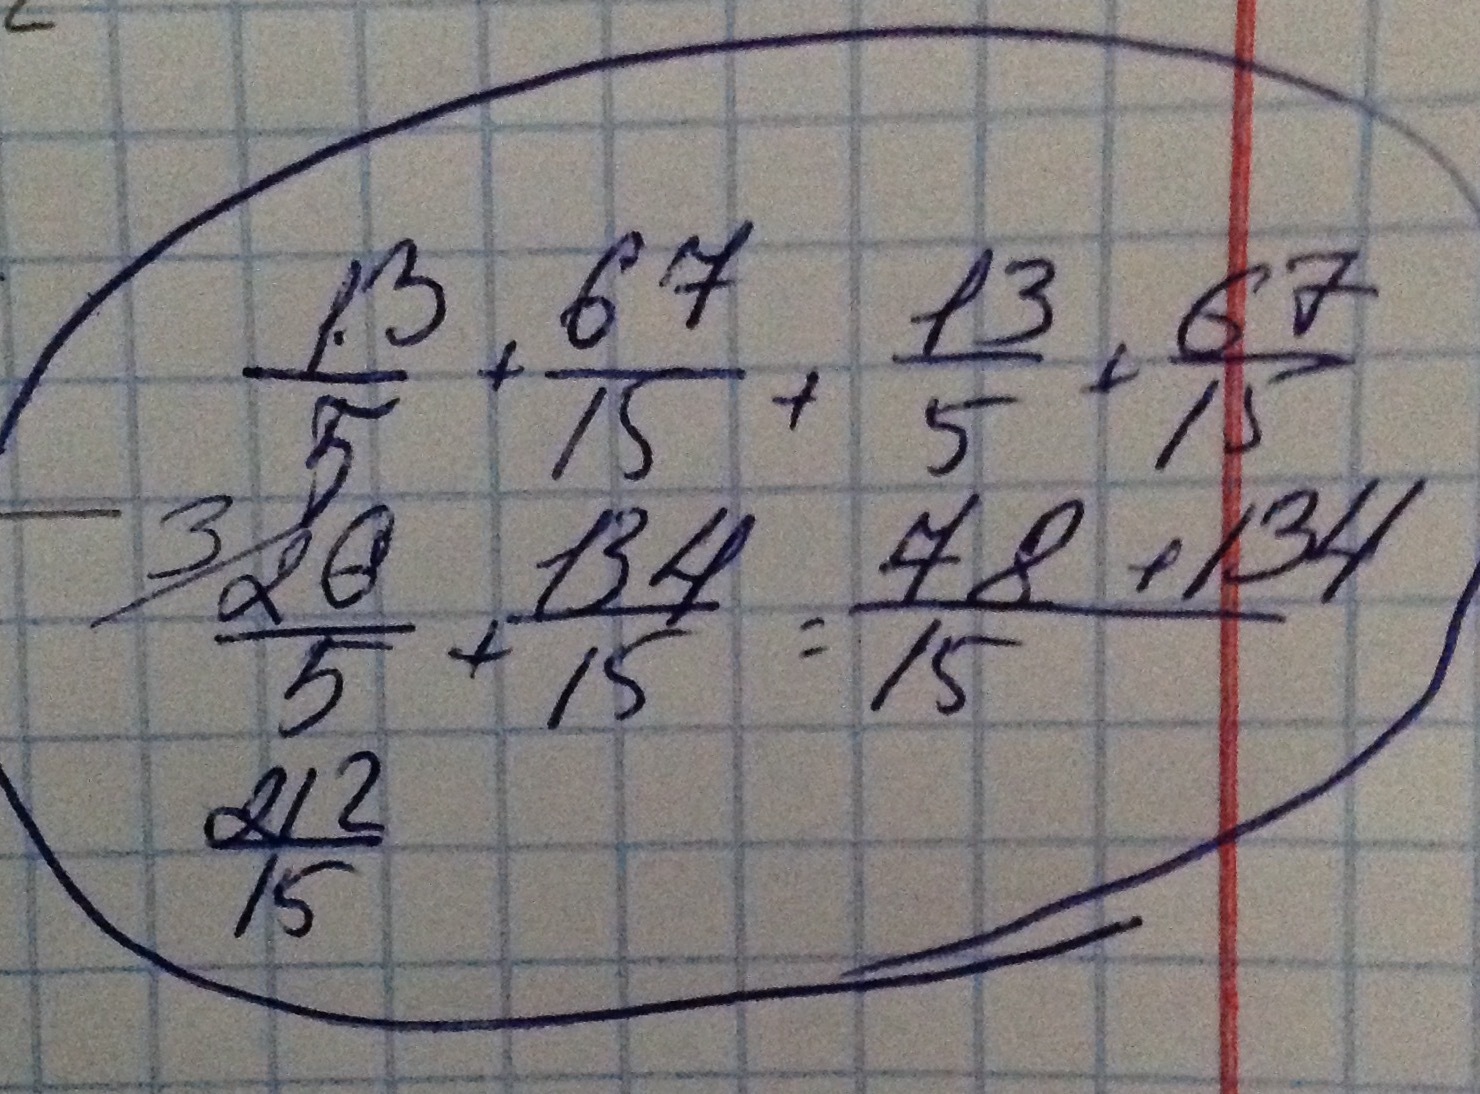 13/5 + 67/15 + 13/5 + 67/15
3/ 26/5 + 134/15 = 78 + 134/15
212/15